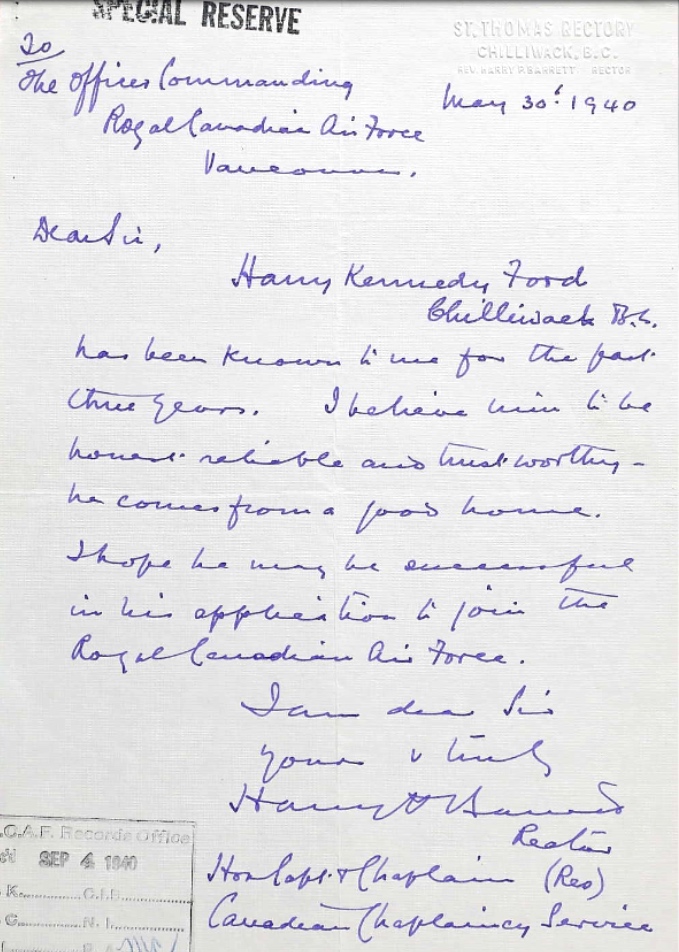 SPECIAL RESERVE
ST. THOMAS RECTORY
CHILLIWACK, B.C.
REV. HARRY P. BARRETT RECTOR
To
The Officer Commanding
May 30t 1940
Royal Canadian Air Force
Vancouver.
Dear Sir,
Harry Kennedy Ford
Chilliwack B.C.
has been known to me for the past
three years. I believe him to be
honest reliable and trustworthy -
he comes from a good home.
I hope he may be successful
in his application to join the
Royal Canadian Air Force.
I am dear Sir
yours v truly
Harry
Rector
Hon Capt & Chaplain (Res)
Canadian Chaplaincy Service
.C.A.F. Records Office
SEP 4 1940
K. C.I.B.
C. N.I.